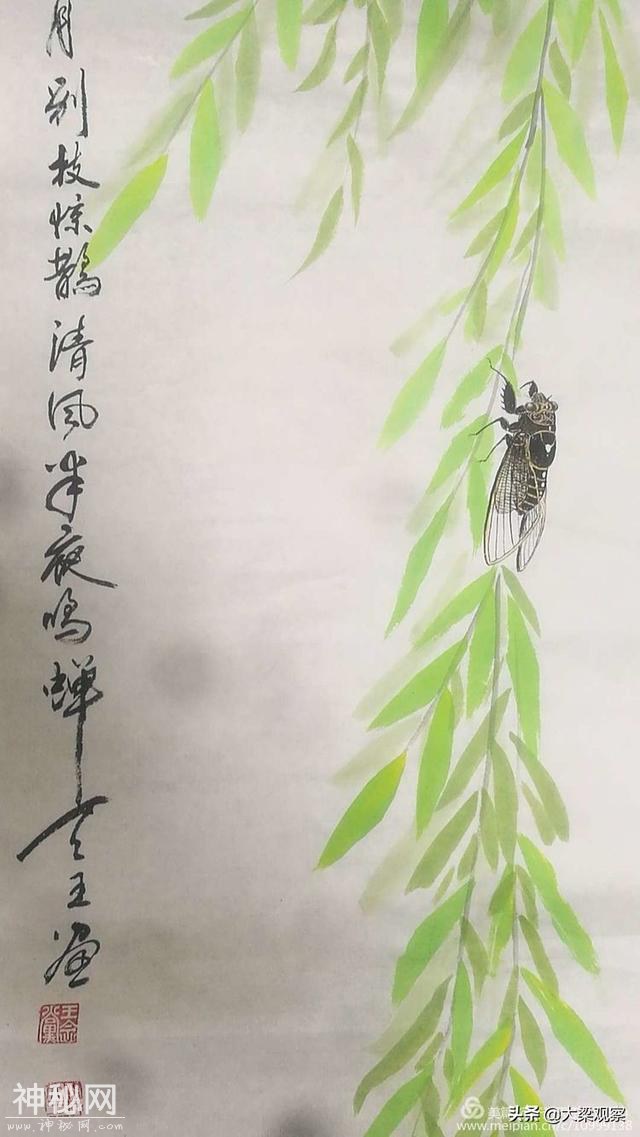 月别枝惊鹊清风半夜鸣蝉
王画
神秘网
www.神秘网.com
头条 @大梁观察
www.meipian.cn/c/10999138